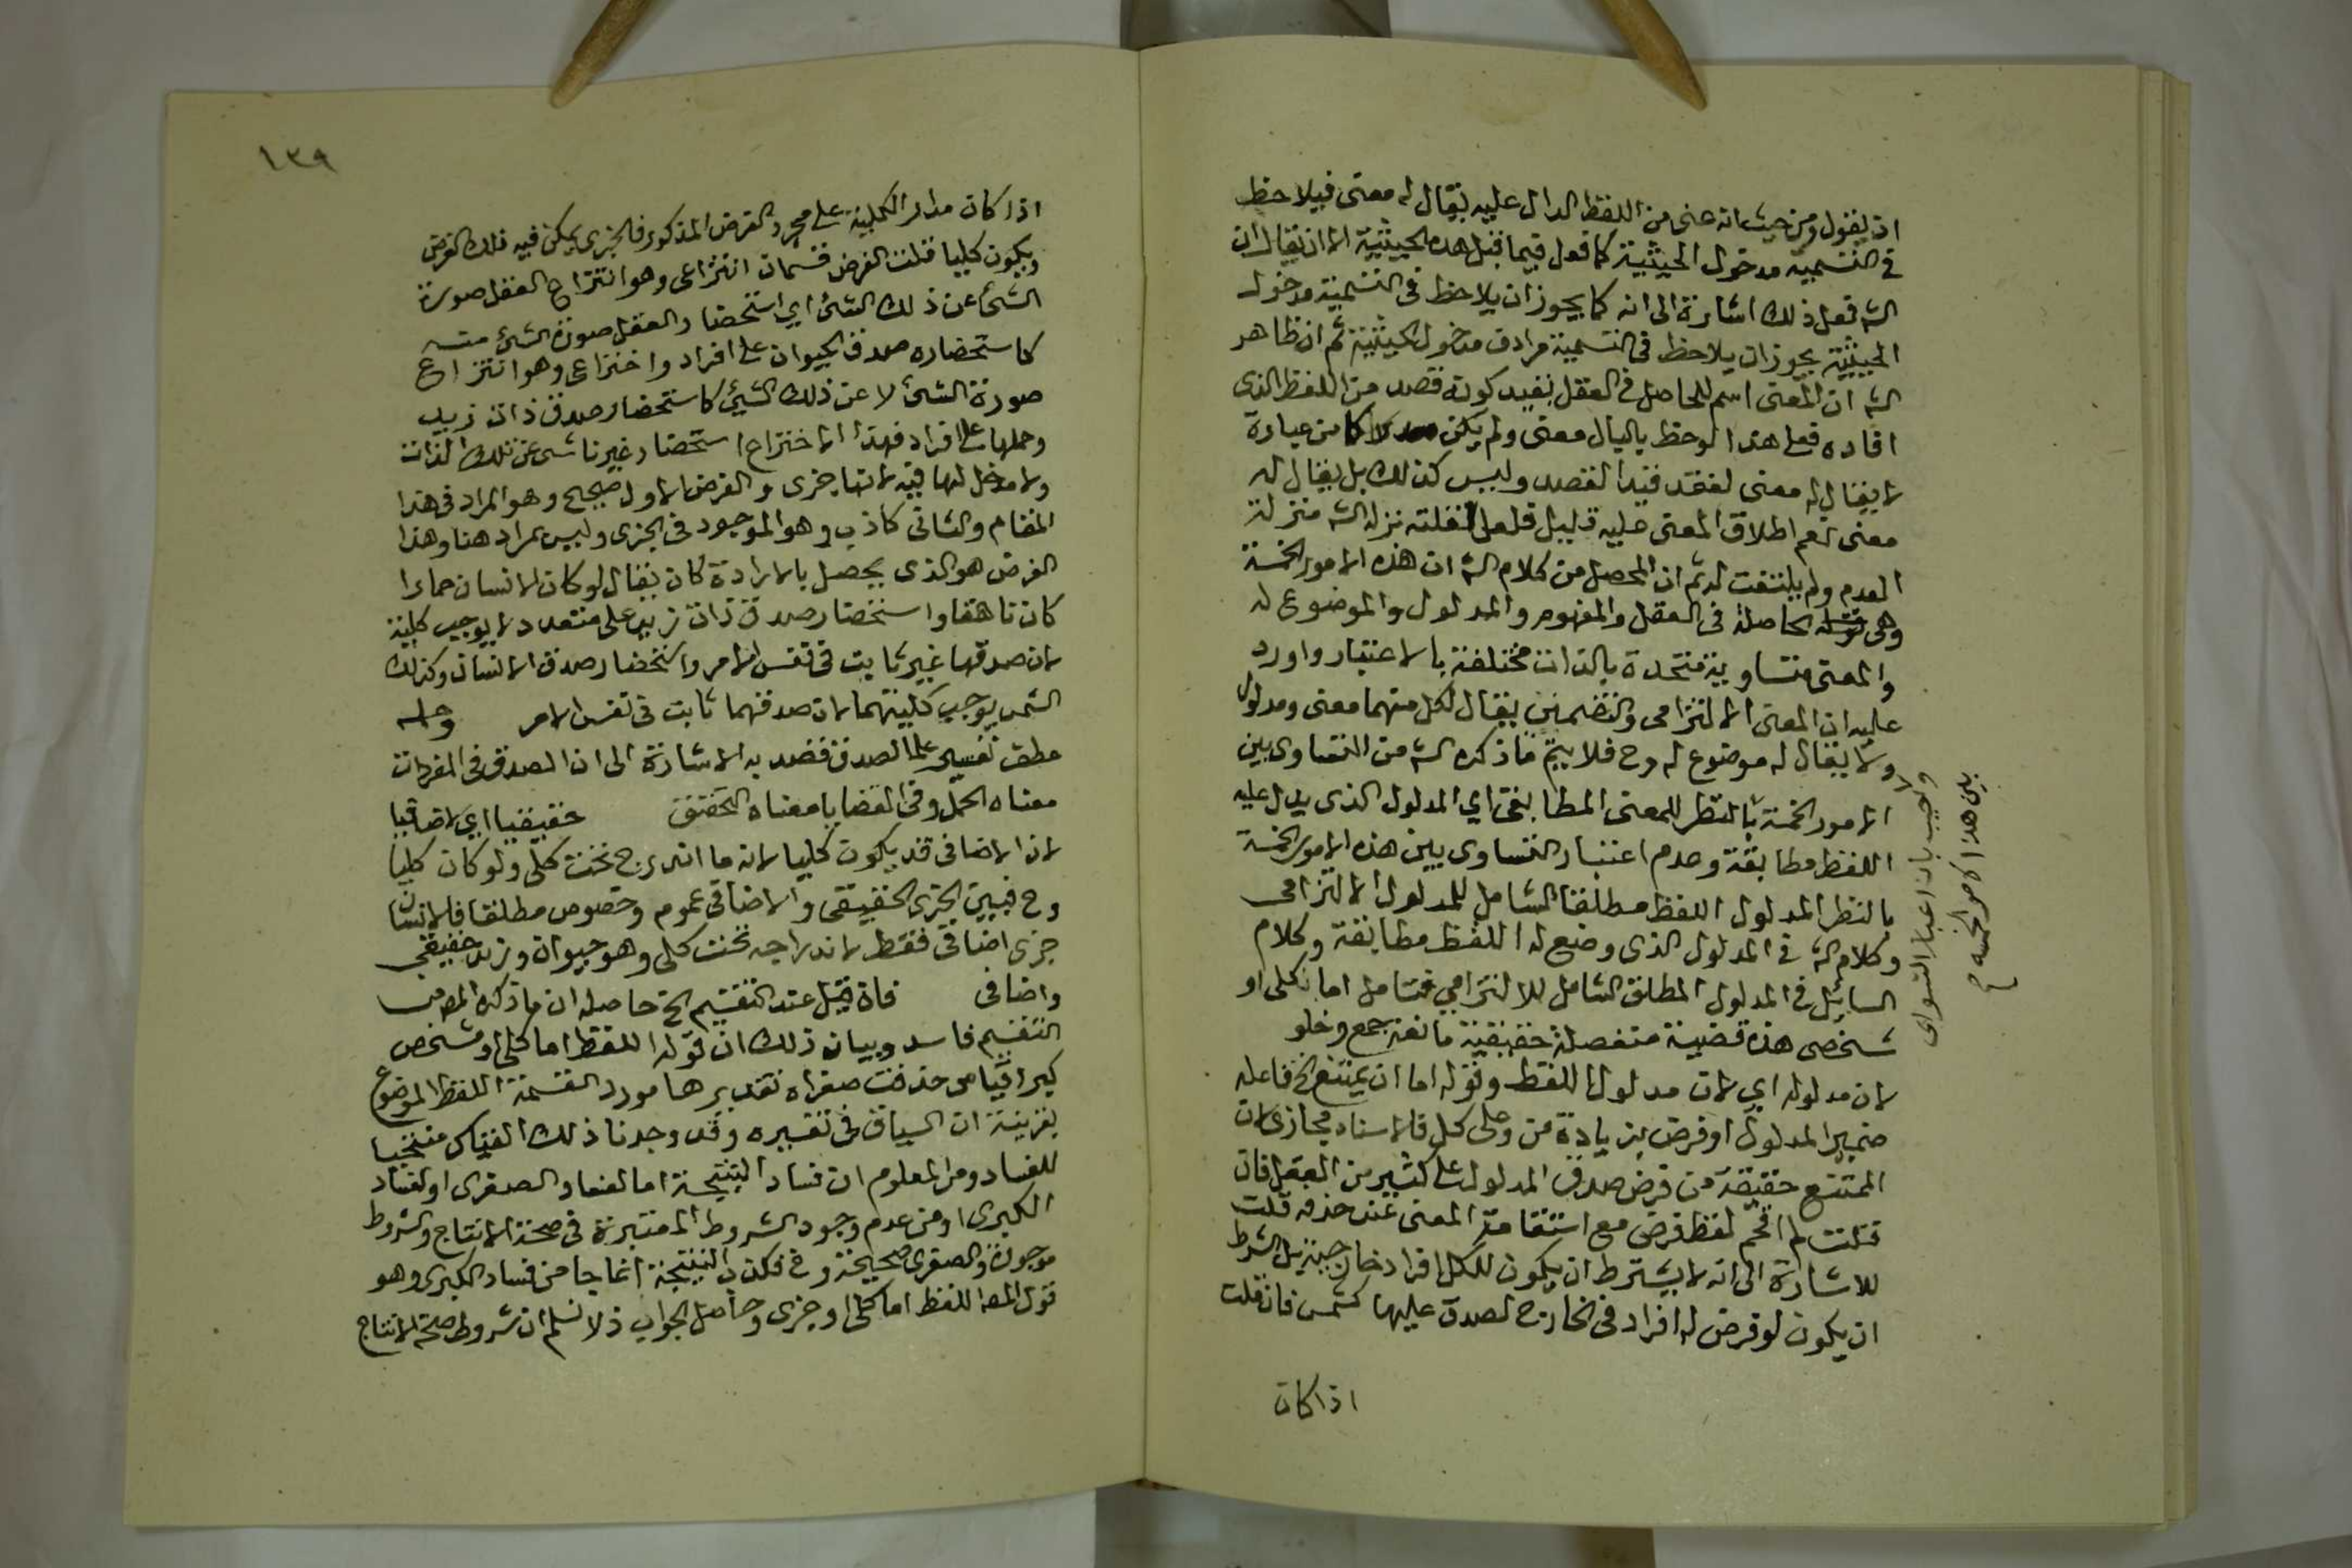 ان يقول ومن حيث انه عنى من اللفظ الدال عليه يقال له معنى فيلاحظ
في التسمية مدخول الحيثية كما فعل فيما قبل هذه الحيثية الا ان يقال ان
الش فعل ذلك اشارة الى انه كما يجوز ان يلاحظ في التسمية مدخول
الحيثية يجوز ان يلاحظ في التسمية مرادف مدخول الحيثية ثم ان ظاهر
الش ان المعنى اسم للحاصل في العقل بقيد كونه قصد من اللفظ الذى
افاده فعلى هذا لو حظ بالبال معنى ولم يكن من عبارة
لا يقال له معنى لفقد قيد القصد وليس كذلك بل يقال له
معنى نعم اطلاق المعنى عليه قليل فلعل لقلته نزله الش منزلة
العدم ولم يلتفت له ثم ان المحصل من كلام الش ان هذه الامور الخمسة
وهى الحاصلة في العقل والمفهوم والمدلول والموضوع له
والمعنى متساوية متحدة بالذات مختلفة بالاعتبار واورد
عليه ان المعنى الالتزامى والتضمنين يقال لكل منهما معنى ومدلول
ولا يقال له موضوع له وح فلا يتم ما ذكره الش من التساوى بين
الامور الخمسة بالنظر للمعنى المطابقى اي المدلول الذى يدل عليه
اللفظ مطابقة وعدم اعتبار التساوى بين هذه الامور الخمسة
بالنظر المدلول اللفظ مطلقا الشامل للمدلول الالتزامى
وكلام الش في المدلول الذى وضع له اللفظ مطابقة وكلام
السايل في المدلول المطلق الشامل للالتزامي فتامل اما كلى او
شخصى هذه قضية منفصلة حقيقية مانعة جمع وخلو
لان مدلوله اي لان مدلول اللفظ وقوله اما ان يمتنع الخ فاعله
ضمير المدلول او فرض بزيادة من وعلى كل فالاسناد مجازى لان
الممتنع حقيقة من فرض صدق المدلول على كثير من العقل فان
قلت لم اقحم لفظ فرض مع استقامة المعنى عند حذفه قلت
للاشارة الى انه لا يشترط ان يكون للكل افراد خارجية بل الشرط
ان يكون لو فرض له افراد في الخارج لصدق عليها كشمس فان قلت
اذا كان
واجيب بان اعتبار التساوى
بين هذه الامور الخمسة
١٣٩
اذا كان مدار الكلية على مجرد الفرض المذكور فالجزى يمكن فيه ذلك الفرض
ويكون كليا قلت الفرض قسمان انتزاعى وهو انتزاع العقل صورة
الشئ عن ذلك الشئ اي استحضار العقل صورة الشئ منه
كاستحضاره صدق الحيوان على افراد واختراعى وهو انتزاع
صورة الشئ لا عن ذلك الشيئ كاستحضار صدق ذات زيد
وحملها على افراد فهذا الاختراع استحضار غير ناشى عن تلك الذات
ولا مدخل لها فيه لانها جزى والفرض الاول صحيح وهو المراد فى هذا
المقام والثانى كاذب وهو الموجود فى الجزى وليس بمراد هنا وهذا
الفرض هو الذى يحصل بالارادة كان يقال لو كان الانسان حمارا
كان ناهقا واستحضار صدق ذات زيد على متعدد لا يوجب كلية
لان صدقها غير ثابت فى نفس الامر واستحضار صدق الانسان وكذلك
الشمس يوجب كليتهما لان صدقهما ثابت فى نفس الامر وحمله
عطف تفسير على الصدق قصد به الاشارة الى ان الصدق فى المفردات
معناه الحمل وفى القضايا معناه التحقق حقيقيا اي لا اضافيا
لان الاضافى قد يكون كليا لانه ما اندرج تحت كلى ولو كان كليا
وح فبين الجزى الحقيقى والاضافى عموم وخصوص مطلقا فالانسان
جزى اضافى فقط لاندراجه تحت كلى وهو حيوان وزيد حقيقى
واضافى فان قيل عند التقسيم الخ حاصله ان ما ذكره المص من
التقسيم فاسد وبيان ذلك ان قوله اللفظ اما كلى او مشخص
كبرا قياس حذفت صغراه تقديرها مورد القسمة اللفظ الموضوع
بقرينة ان السياق فى تفسيره وقد وجدنا ذلك القياس منتجا
للفساد ومن المعلوم ان فساد النتيجة اما لفساد الصغرى او لفساد
الكبرى او من عدم وجود الشروط المعتبرة فى صحة الانتاج والشروط
موجودة والصغرى صحيحة وح فكذب النتيجة انما جا من فساد الكبرى وهو
قول المص اللفظ اما كلى او جزى وحاصل الجواب ذلا نسلم ان شروط صحة الانتاج